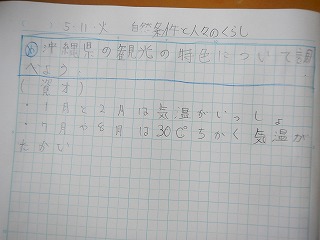 5-11-火 自然条件と人々のくらし
め 沖縄県の観光の特色について調
べよう。
(資才)
・1月と2月は気温がいっしょ
・7月や8月は30℃ちかく気温が
たかい